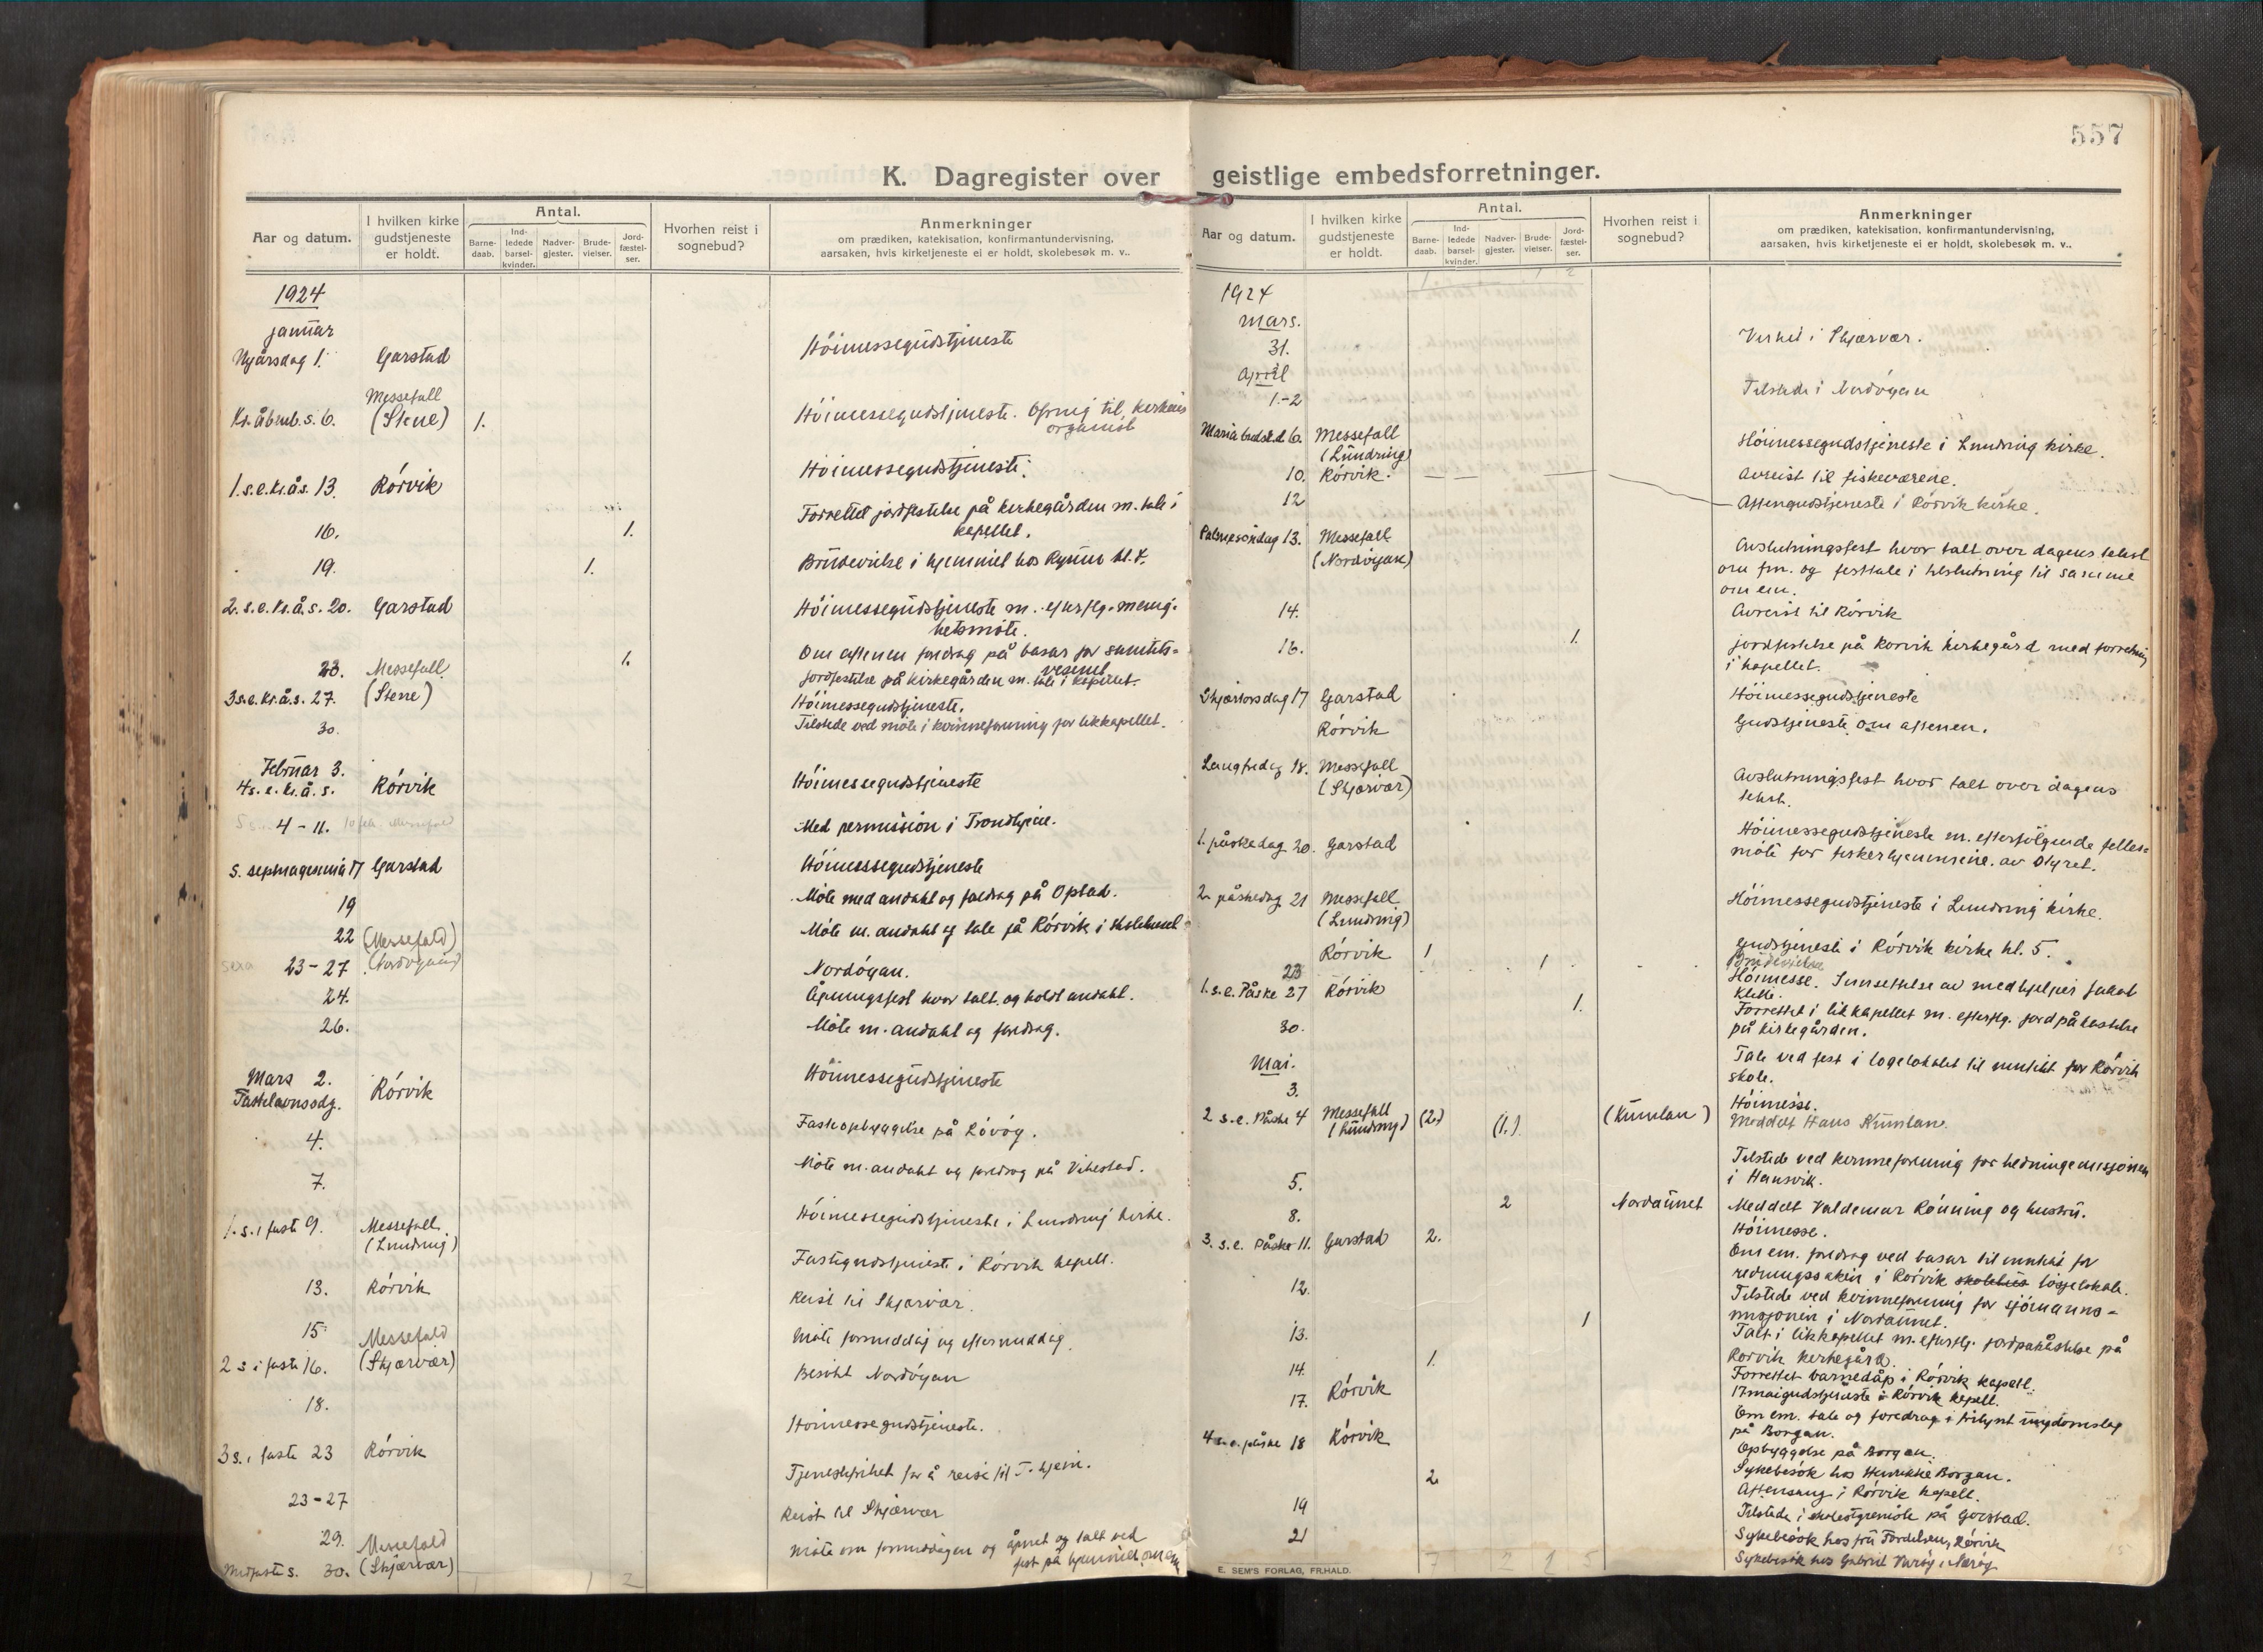 557
K. Dagregister over geistlige embedsforretninger.
Aar og datum.
I hvilken kirke gudstjeneste er holdt.
Antal.
Barne-daab.
Ind-ledede barsel-kvinder.
Nadver-gjester.
Brude-vielser.
Jord-fæstel-ser.
Hvorhen reist i sognebud?
Anmerkninger
om prædiken, katekisation, konfirmantundervisning,
aarsaken, hvis kirketjeneste ei er holdt, skolebesøk m. v..
1924
januar
Nyårsdag 1. Garstad Höimessegudstjeneste
Messefall
Kr. åbenb. s. 6. (Stene) 1. Höimessegudstjeneste. Ofring til kirkens
organist
1. s. e. Kr. å. s. 13. Rörvik Höimessegudstjeneste.
16. 1. Forrettet jordfestelse på kirkegården m. tale i
kapellet.
19. 1. Brudevielse i hjemmet hos
2. s. e. Kr. å. s. 20. Garstad Höimessegudstjeneste m. efterflg. menig-
hetsmöte.
Om aftenen foredrag på basar for
23. Messefall 1. Jordfestelse på kirkegården m. tale i kapellet.
3 s. e. Kr. å. s. 27. (Stene) Höimessegudstjeneste.
30. Tilstede ved möte i kvinneforening for likkapellet.
Februar 3.
4 s. e. Kr. å. s. Rörvik Höimessegudstjeneste
4-11. 10 feb. Messefald Med permission i Trondhjem.
S. septuagesima 17 Garstad Höimessegudstjeneste
19 Möte med andakt og foredrag på Opstad.
22 Möte m. andakt og tale på Rörvik i skolehuset
(Messefald)
23-27 (Nordöyan) Nordöyan.
24. Åpningsfest hvor talt og holdt andakt.
26. Möte m. andakt og foredrag.
Mars 2.
Fastelavnssdg. Rörvik Höimessegudstjeneste
4. Fasteopbyggelse på Lövöy.
7. Möte m. andakt og foredrag på Vikestad.
1. s. i faste 9. Messefall Höimessegudstjeneste i Lundring kirke.
(Lundring)
13. Rörvik Fastegudstjeneste i Rörvik kapell.
15 Reist til Skjærvær.
Messefald
2 s i faste 16. (Skjærvær) Möte formiddag og eftermiddag.
18. Besökt Nordöyan
3 s. i faste 23 Rörvik Höimessegudstjeneste.
23-27 Tjenestefrihet for å reise til T.hjem.
29. Reist til Skjærvær
Messefald
Midfaste s. 30. (Skjærvær) Möte om formiddagen og åpnet og talt ved
fest på hjemmet om em
1 1 2
Aar og datum.
I hvilken kirke gudstjeneste er holdt.
Antal.
Barne-daab.
Ind-ledede barsel-kvinder.
Nadver-gjester.
Brude-vielser.
Jord-fæstel-ser.
Hvorhen reist i sognebud?
Anmerkninger
om prædiken, katekisation, konfirmantundervisning,
aarsaken, hvis kirketjeneste ei er holdt, skolebesøk m. v..
1 1 2
1924
Mars.
31. i Skjærvær.
April
1.-2 Tilstede i Nordöyan
Maria budsk.d. 6. Messefall Höimessegudstjeneste i Lundring kirke.
(Lundring)
10. Rörvik. Avreist til fiskeværene.
12 Aftengudstjeneste i Rörvik kirke.
Palmesöndag 13. Messefall Avslutningsfest hvor talt over dagens tekst
(Nordöyan) om fm. og festtale i tilslutning til samme
om em.
14. Avreist til Rörvik
16. 1. Jordfestelse på Rörvik kirkegård med forretning
i kapellet.
Skjærtorsdag 17 Garstad Höimessegudstjeneste
Rörvik Gudstjeneste om aftenen.
Langfredag 18. Messefall Avslutningsfest hvor talt over dagens
(Skjærvær) tekst.
1. påskedag 20. Garstad Höimessegudstjeneste m. efterfölgende felles-
möte for fiskerhjemmene av Styret.
2 påskedag 21 Messefall Höimessegudstjeneste i Lundring kirke.
(Lundring)
Rörvik 1 Gudstjeneste i Rörvik kirke kl. 5.
23 1 Brudevielse
1. s. e. Påske 27 Rörvik Höimesse. Innsettelse av medhjelper Jakob
30. 1. Forrettet i likkapellet m. efterflg. jordpåkastelse
på kirkegården.
Mai.
3. Tale ved fest i logelokalet til inntekt for Rörvik
skole.
2 s. e. Påske 4 Messefall (2.) (1.) (Kumlan) Höimesse.
(Lundring) Meddelt Hans Kumlan.
5. Tilstede ved kvinneforening for hedningemisjonen
i Hansvik.
8. 2 Nordaunet Meddelt Valdemar Rönning og hustru.
3. s. e. Påske 11. Garstad 2. Höimesse.
Om em. foredrag ved basar til inntekt for
redningssaken i Rörvik skolehus losjelokale.
12. Tilstede ved kvinneforening for sjömanns-
misjonen i Nordaunet.
13. 1 Talt i likkapellet m. efterflg. jordpåkastelse på
Rörvik kirkegård.
14. 1. Forrettet barnedåp i Rörvik kapell.
17. Rörvik 17maigudstjeneste i Rörvik kapell.
Om em. tale og foredrag i frilynt ungdomslag
på Borgan.
4 s. e. påske 18 Rörvik Opbyggelse på Borgan.
Sykebesök hos Henrikke Borgan.
2. Aftensang i Rörvik kapell.
19 Tilstede i på Garstad.
21 Sykebesök hos fru Rörvik
Sykebesök hos Gabriel Næröy
7 2 1 5
E. SEM'S FORLAG, FR.HALD.